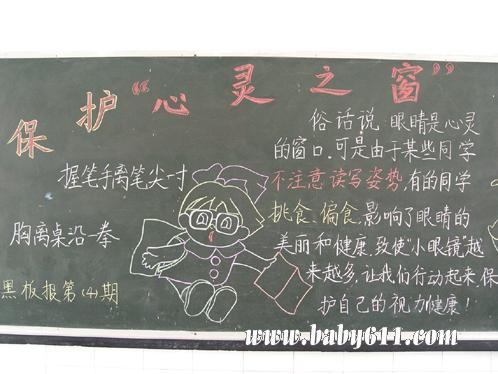 保护“心灵之窗”
握笔手离笔尖一寸
胸离桌沿一拳
黑板报第(4)期
俗话说:眼睛是心灵
的窗口,可是由于某些同学
不注意读写姿势,有的同学
挑食、偏食,影响了眼睛的
美丽和健康,致使“小眼镜”越
来越多,让我们行动起来,保
护自己的视力健康!
www.baby611.com